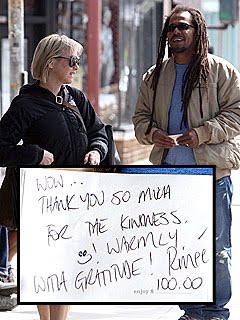 WOW...
THANK YOU SO MUCH
FOR THE KINDNESS.
☺! WARMLY,
WITH GRATITUDE! Rinpé
enjoy 100.00